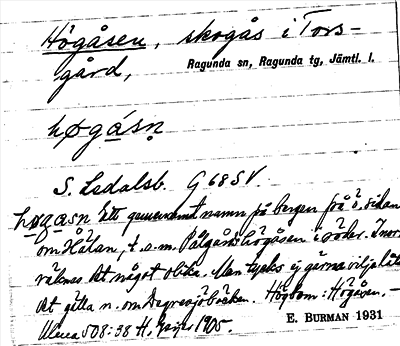 Högåsen, skogås i Tors-
gård,
Ragunda sn, Ragunda tg, Jämtl. l.
høgåsn
S. Ledalsb. G 68 SV.
høgasn Ett gemensamt namn på bergen på ö. sidan
om Hålan, t. o. m. Pålgårdshögåsen i söder. Inor
räknas det något olika. Man tycks ej gärna vilja låta
det gälla n. om Degresjöbäcken. Högbom: Högåsen. –
Ulma 508:38 H. Geijer 1905.
E. BURMAN 1931